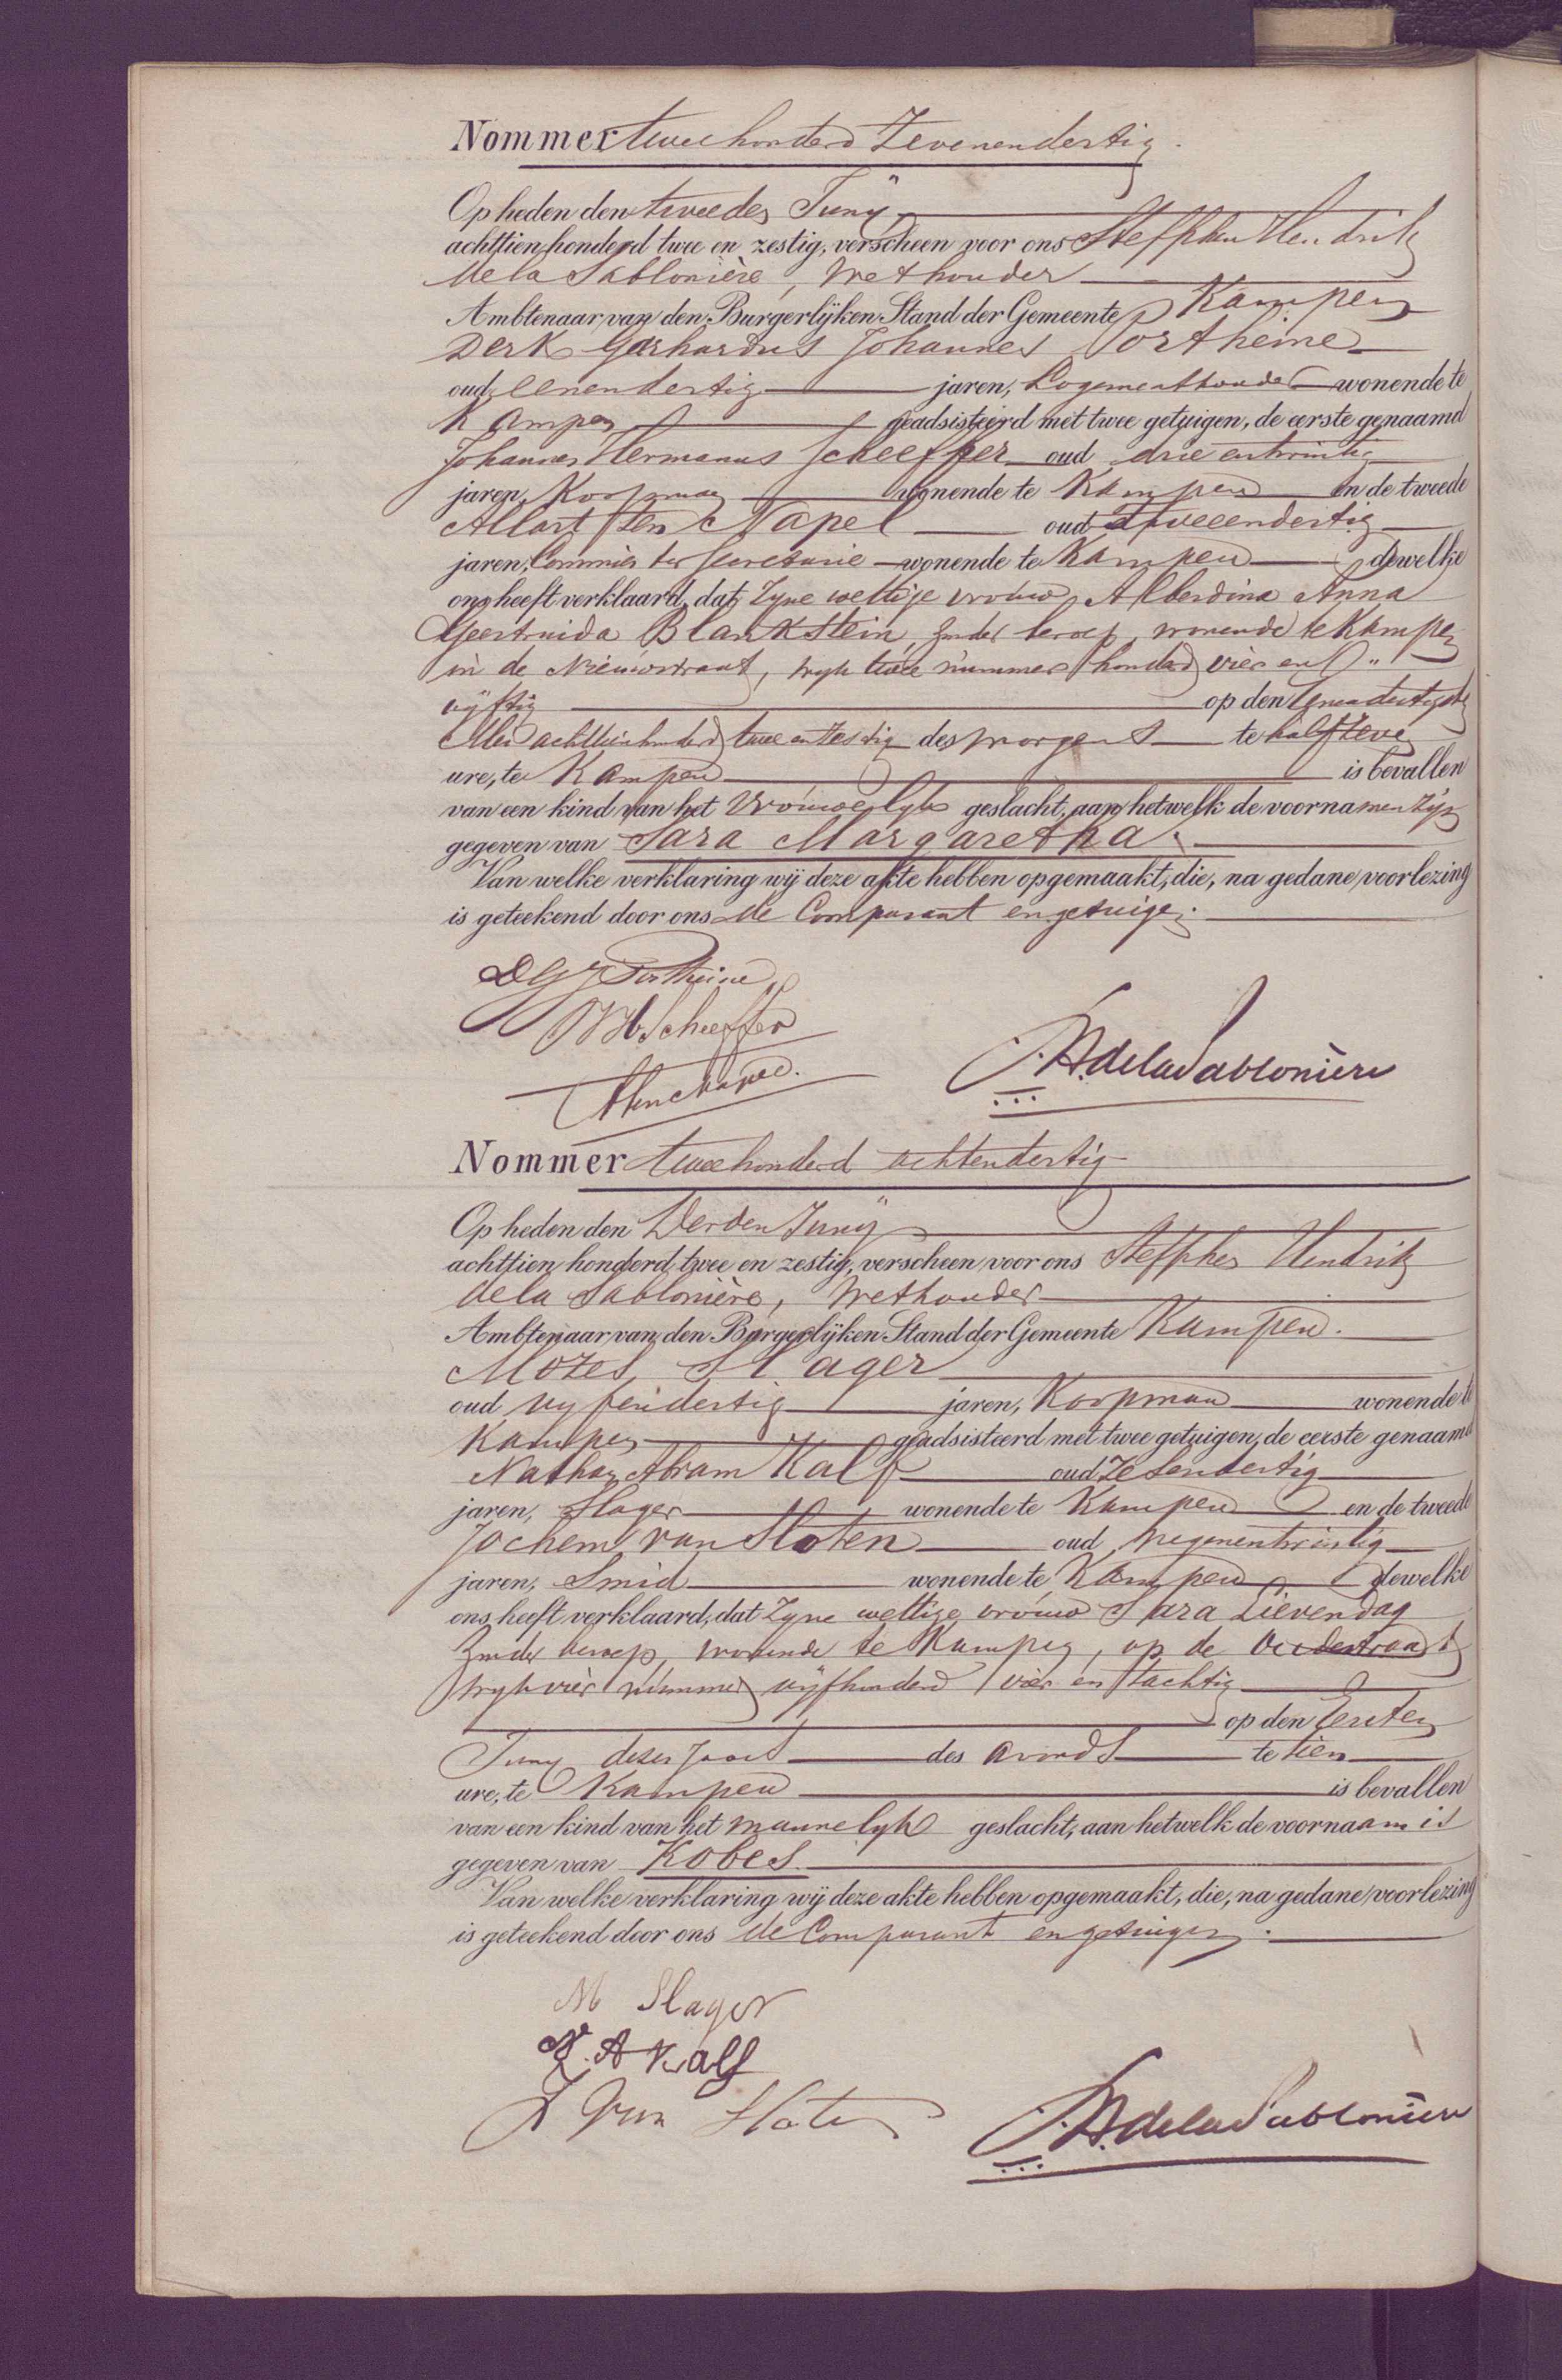 Nommer twee honderd Zevenendertig.
Op heden den tweeden Junij
achttien honderd twee en zestig, verscheen voor ons Steffhen Hendrik
de la Sablonière, Wethouder
Ambtenaar van den Burgerlijken Stand der Gemeente Kampen
Derk Gerhardus Johannes Portheine
oud eenendertig jaren, Logementhouder wonende te
Kampen geadsisteerd met twee getuigen, de eerste genaamd
Johannes Hermanus Scheeffer oud drie entwintig
jaren, Koopman wonende te Kampen en de tweede
Allart ten Napel oud tweeendertig
jaren, Commies ter Secretarie wonende te Kampen dewelke
ons heeft verklaard, dat Zyne wettige vrouw Alberdina Anna
Geertruida Blankstein, zonder beroep, wonende te Kampen
in de Nieuwstraat, wyk twee nummer honderd vier en
vijftig op den Eenendertigsten
Mei achttienhonderd twee en Zestig des morgens te half Zeven
ure, te Kampen is bevallen
van een kind van het vrouwelyk geslacht, aan hetwelk de voornamen zijn
gegeven van Sara Margaretha.
Van welke verklaring wij deze akte hebben opgemaakt, die, na gedane voorlezing
is geteekend door ons de Comparant en getuigen.
DGJ Portheine
JH Scheeffer
A ten Napel.
S.H. de la Sablonière
Nommer twee honderd achtendertig
Op heden den Derden Junij
achttien honderd twee en zestig, verscheen voor ons Steffhen Hendrik
de la Sablonière, Wethouder
Ambtenaar van den Burgerlijken Stand der Gemeente Kampen.
Mozes Slager
oud vyfendertig jaren, Koopman wonende te
Kampen geadsisteerd met twee getuigen, de eerste genaamd
Nathan Abram Kalf oud Zesendertig
jaren, Slager wonende te Kampen en de tweede
Jochem van Sloten oud negenentwintig
jaren, Smid wonende te Kampen dewelke
ons heeft verklaard, dat Zyne wettige vrouw Sara Lievendag
zonder beroep, wonende te Kampen, op de Oudestraat
wyk vier nummer vijfhonderd vier en tachtig
op den Eersten
Juny dezes Jaars des avonds te tien
ure, te Kampen is bevallen
van een kind van het mannelyk geslacht, aan hetwelk de voornaam is
gegeven van Kobes.
Van welke verklaring wij deze akte hebben opgemaakt, die, na gedane voorlezing
is geteekend door ons de Comparant en getuigen.
M Slager
N. A Kalf
J van Sloten
S.H. de la Sablonière